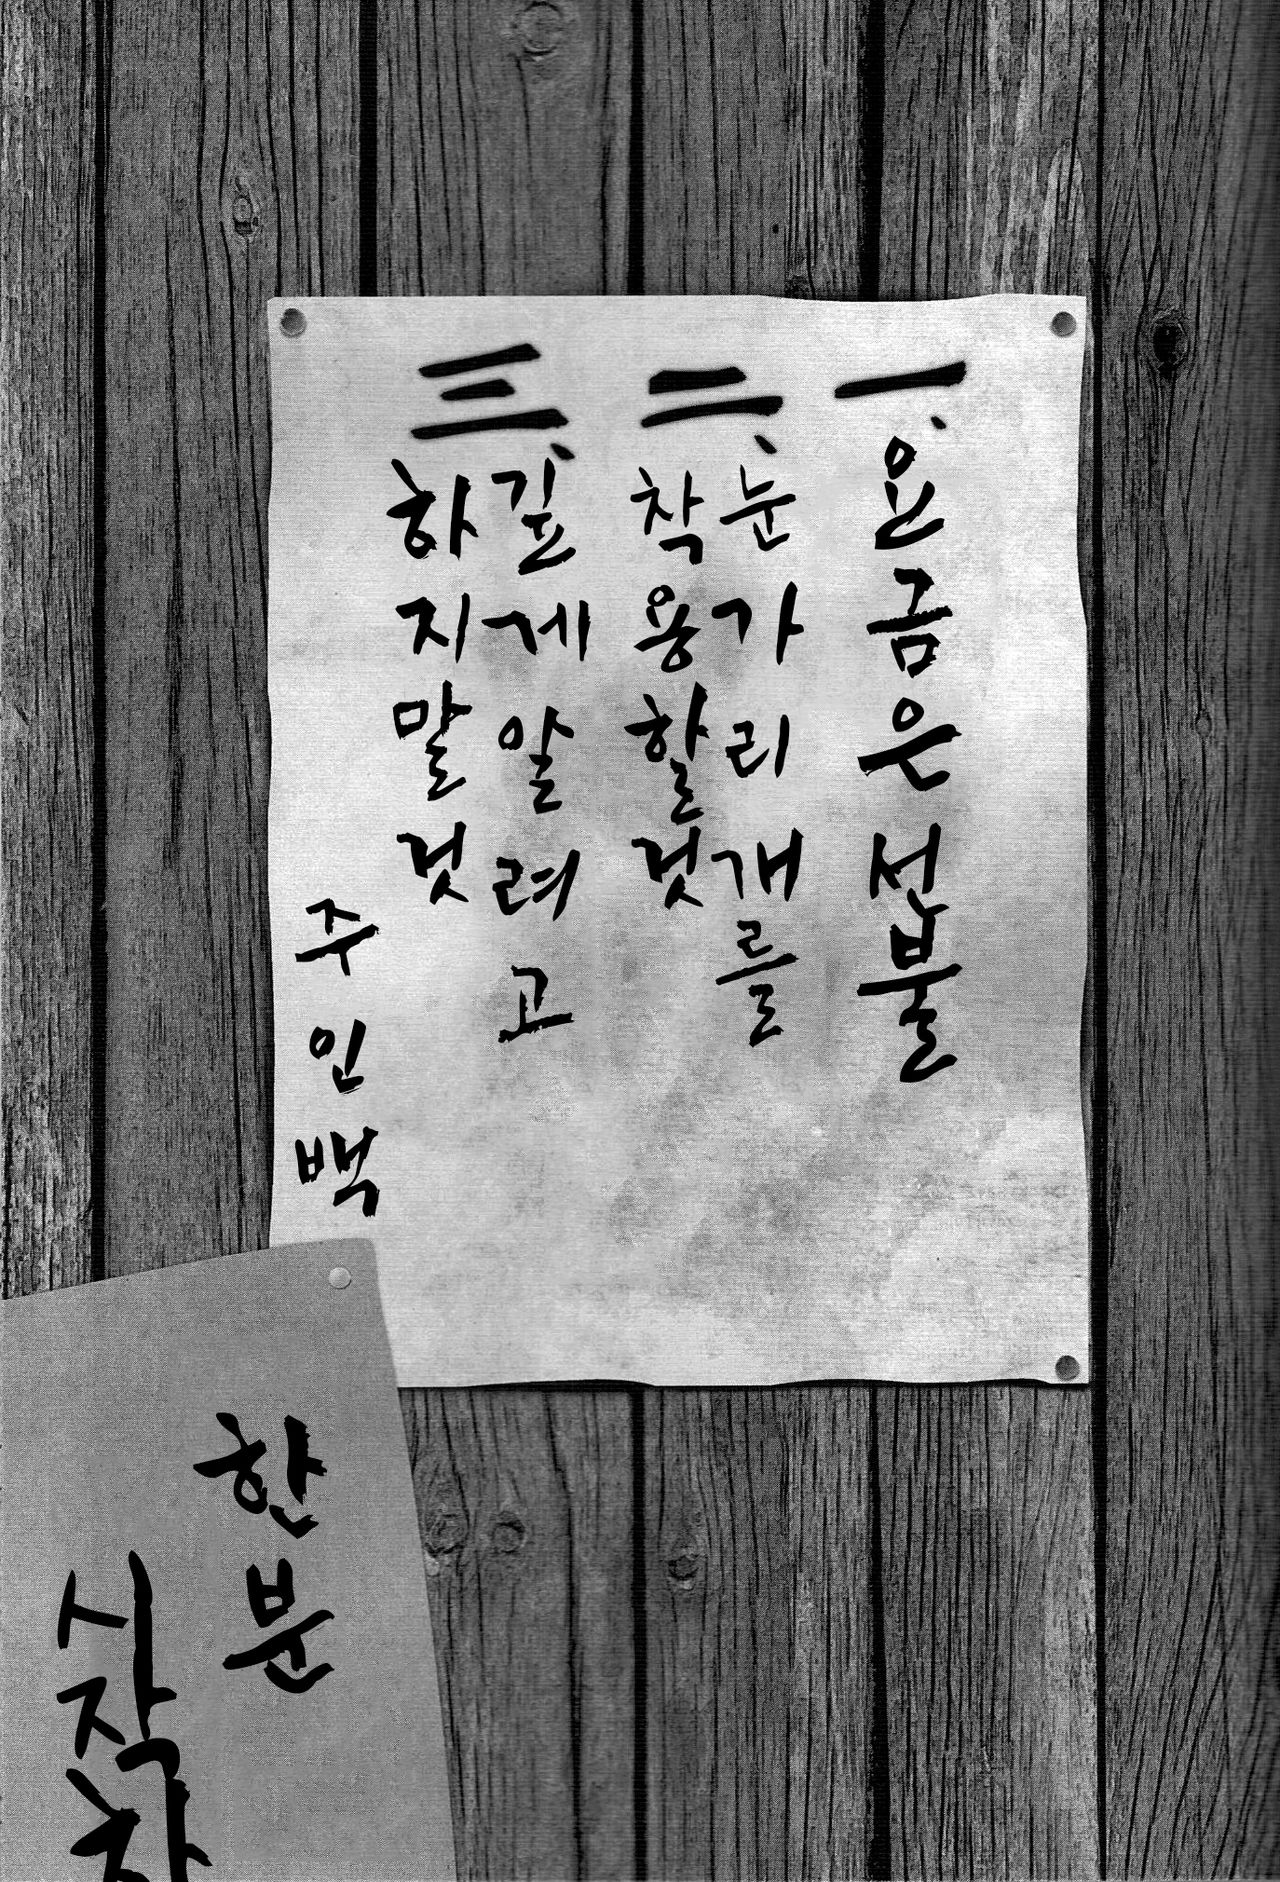 一、요금은 선불
二、눈가리개를
착용할 것
三、깊게 알려고
하지 말 것
주인백
한분
시작하